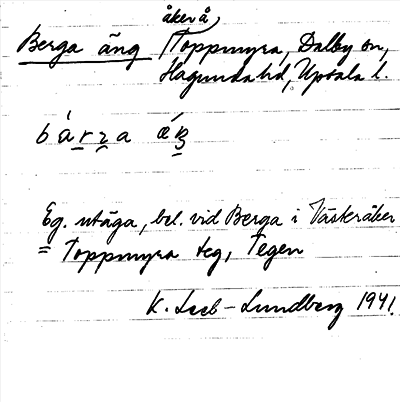 åker å
Berga äng Toppmyra, Dalby sn,
Hagunda hd, Uppsala l.
bárza ǽŋ
Eg. utäga, bel. vid Berga i Västeråker
= Toppmyra teg, Tegen
K. Leeb-Lundberg 1941.